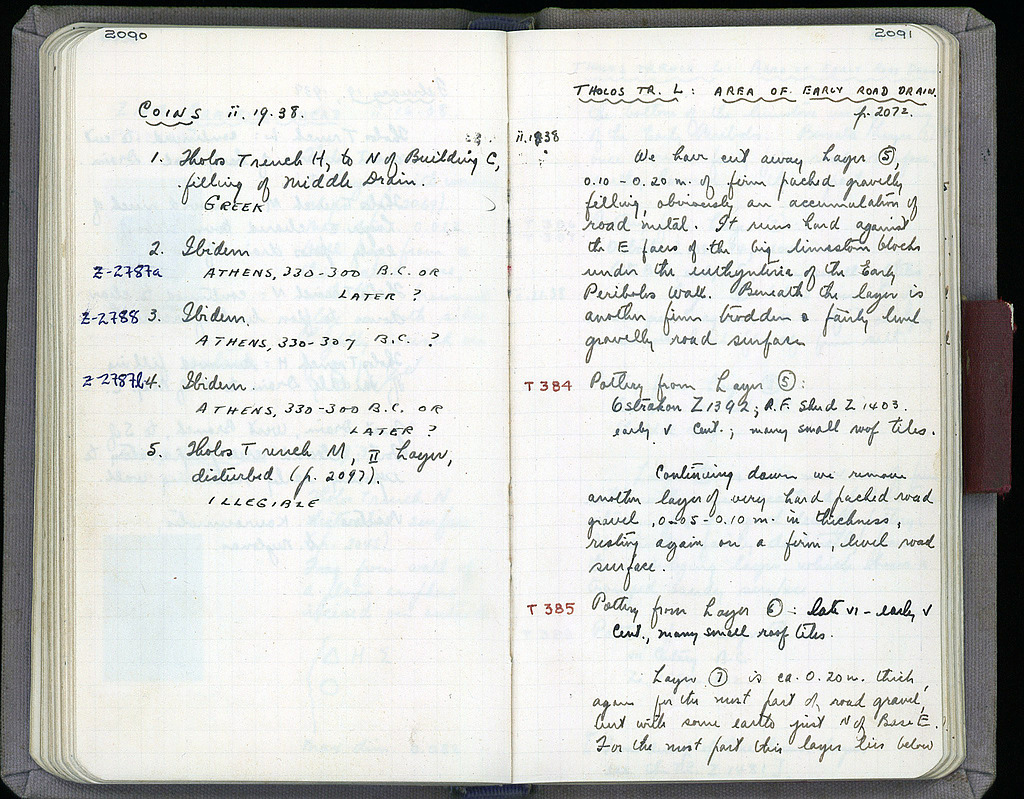 2090
COINS ii.19.38.
1. Tholos Trench H, to N of Building C,
filling of Middle Drain.
GREEK
2. Ibidem
Z-2787a
ATHENS, 330-300 B.C. OR
LATER ?
Z-2788 3. Ibidem.
ATHENS, 330-307 B.C. ?
Z-2787b 4. Ibidem.
ATHENS, 330-300 B.C. OR
LATER ?
5. Tholos Trench M, II Layer,
disturbed (p. 2097).
ILLEGIBLE
2091
THOLOS TR. L : AREA OF EARLY ROAD DRAIN.
p. 2072.
ii.1938
We have cut away Layer 5
0.10 - 0.20 m. of firm packed gravelly
filling, obviously an accumulation of
road metal. It runs hard against
the E faces of the big limestone blocks
under the euthynteria of the Early
Peribolos Wall. Beneath the layer is
another firm trodden fairly level
gravelly road surface
T 384 Pottery from Layer 5 :
Ostrakon Z 1392; R.F. Sherd Z 1403.
early V Cent.; many small roof tiles.
Continuing down we remove
another layer of very hard packed road
gravel, 0.05 - 0.10 m. in thickness,
resting again on a firm, level road
surface.
T 385 Pottery from Layer 6 : late VI - early V
Cent., many small roof tiles.
Layer 7 is ca. 0.20 m. thick,
again for the most part of road gravel,
but with some earth just N of Base E.
For the most part this layer lies below